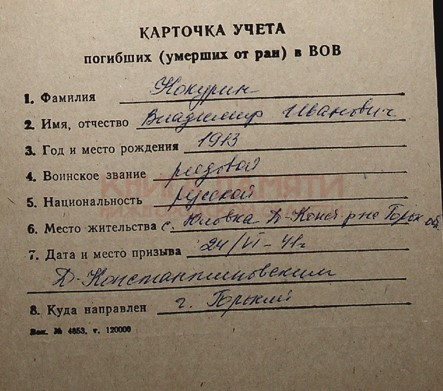 КАРТОЧКА УЧЕТА
погибших (умерших от ран) в ВОВ
1. Фамилия Кокурин
2. Имя, отчество Владимир Иванович
3. Год и место рождения 1913
4. Воинское звание рядовой
КНИГА ПАМЯТИ
5. Национальность русский
6. Место жительства с. Д-Конст. р-на Горьк. об.
7. Дата и место призыва 24/VI-41г.
Д-Константиновским
8. Куда направлен г. Горький
Зак. № 4653, т. 120000